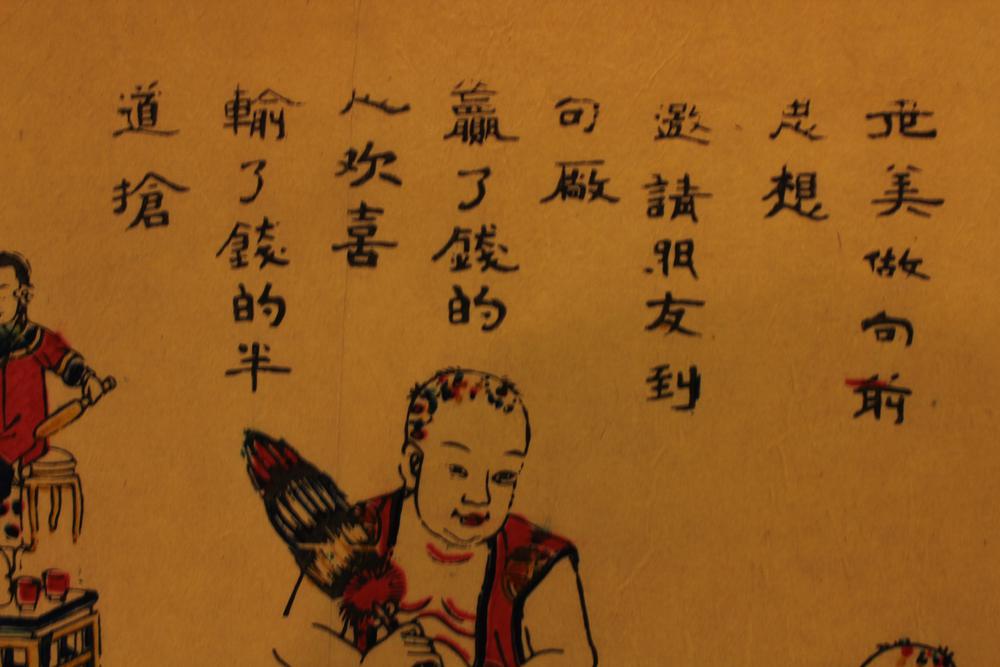 世美做句前
思想
邀請朋友到
句廠
贏了錢的
人欢喜
輸了錢的半
道搶